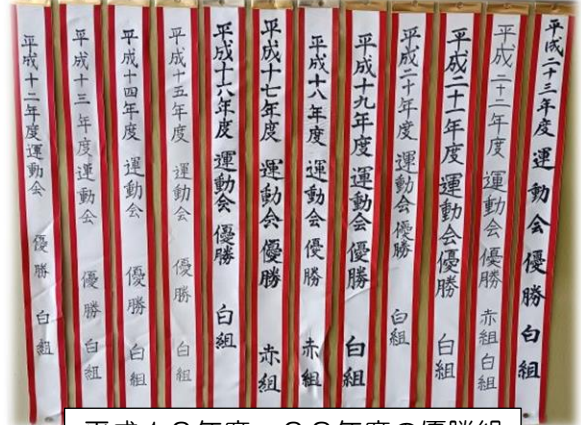 平成二十三年度 運動会 優勝 白組
平成二十二年度 運動会 優勝 赤組 白組
平成二十一年度 運動会 優勝 白組
平成二十年度 運動会 優勝 白組
平成十九年度 運動会 優勝 白組
平成十八年度 運動会 優勝 赤組
平成十七年度 運動会 優勝 赤組
平成十六年度 運動会 優勝 白組
平成十五年度 運動会 優勝 白組
平成十四年度 運動会 優勝 白組
平成十三年度 運動会 優勝 白組
平成十二年度 運動会 優勝 白組